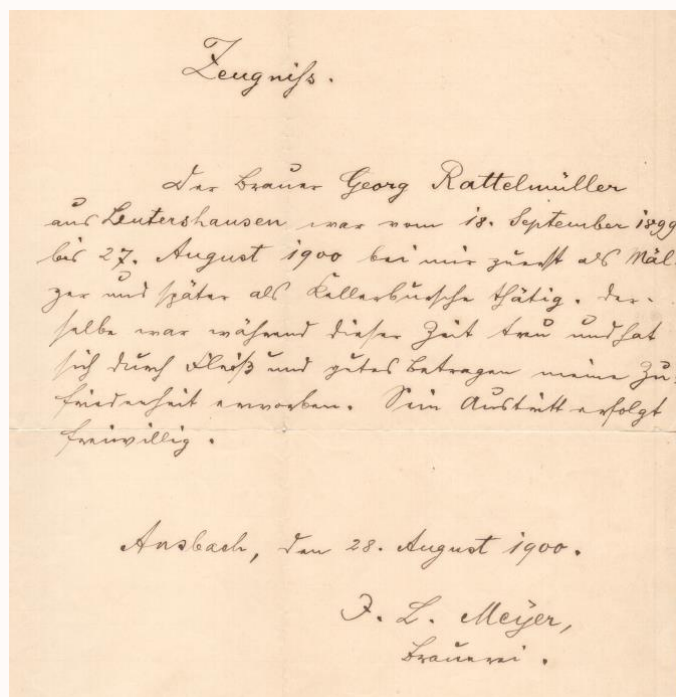 Zeugniß.
Der Brauer Georg Rattelmüller
aus Leutershausen war vom 18. September 1899
bis 27. August 1900 bei mir zuerst als Mäl-
zer und später als Kellerbursche thätig. Der-
selbe war während dieser Zeit treu und hat
sich durch Fleiß und gutes Betragen meine Zu-
friedenheit erworben. Sein Austritt erfolgt
freiwillig.
Ansbach, den 28. August 1900.
J. L. Meyer,
Brauerei.